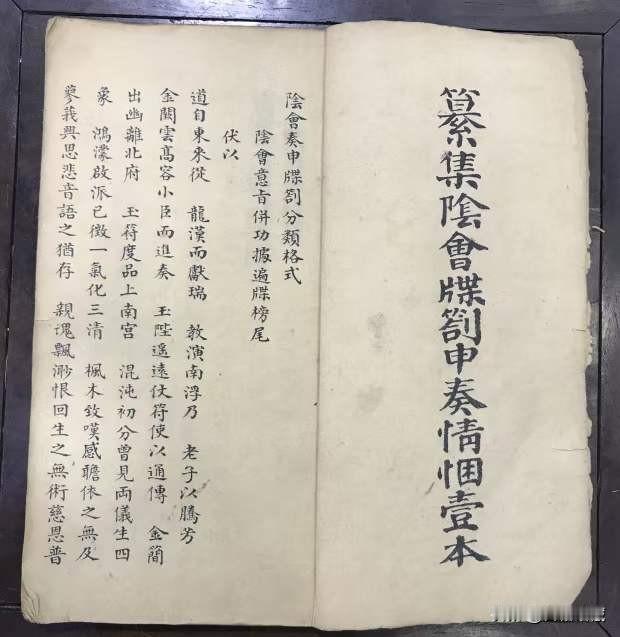 纂集陰會牒劄申奏情悃壹本
陰會奏申牒劄分類格式
陰會意旨併功據遍牒榜尾
伏以
道自東来從 龍漢而獻瑞 教演南浮乃 老子以騰芳
金闕雲高容小臣而進奏 玉陛遥遠仗符使以通傳 金簡
出幽離北府 玉符度品上南宮 混沌初分曾見両儀生四
象 鴻濛啟派已微一氣化三清 楓木致嘆感瞻依之無及
蓼莪興思悲音語之猶存 親塊飄渺恨回生之無術慈恩普